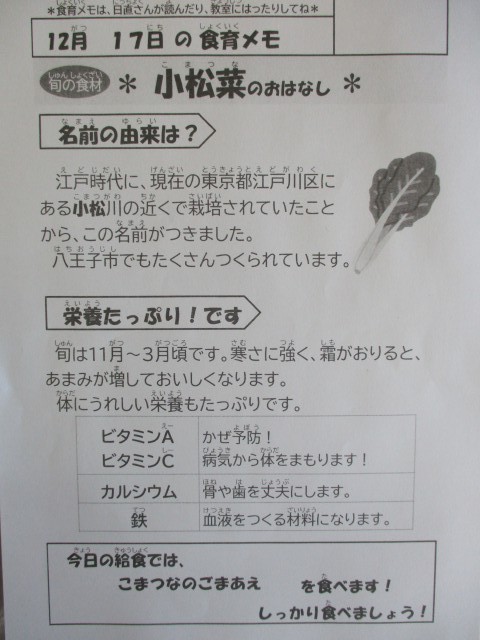 ＊食育メモは、日直さんが読んだり、教室にはったりしてね＊
12月　17日 の 食育メモ
旬の食材 ＊ 小松菜のおはなし ＊
名前の由来は？
江戸時代に、現在の東京都江戸川区に
ある小松川の近くで栽培されていたこと
から、この名前がつきました。
八王子市でもたくさんつくられています。
栄養たっぷり！です
旬は11月～3月頃です。寒さに強く、霜がおりると、
あまみが増しておいしくなります。
体にうれしい栄養もたっぷりです。
ビタミンA かぜ予防！
ビタミンC 病気から体をまもります！
カルシウム 骨や歯を丈夫にします。
鉄 血液をつくる材料になります。
今日の給食では、
こまつなのごまあえ　を食べます！
しっかり食べましょう！